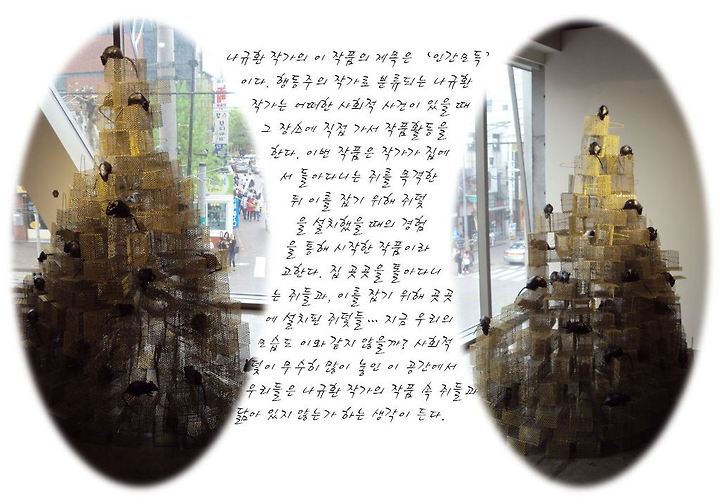 나규환 작가의 이 작품의 제목은 '인간모독'
이다. 행동주의 작가로 분류되는 나규환
작가는 어떠한 사회적 사건이 있을 때
그 장소에 직접 가서 작품활동을
한다. 이번 작품은 작가가 집에
서 돌아다니는 쥐를 목격한
뒤 이를 잡기 위해 쥐덫
을 설치했을 때의 경험
을 통해 시작한 작품이라
고한다. 집 곳곳을 돌아다니
는 쥐들과, 이를 잡기 위해 곳곳
에 설치된 쥐덫들... 지금 우리의
모습도 이와 같지 않을까? 사회적
덫이 무수히 많이 놓인 이 공간에서
우리들은 나규환 작가의 작품 속 쥐들과
닮아 있지 않는가 하는 생각이 든다.